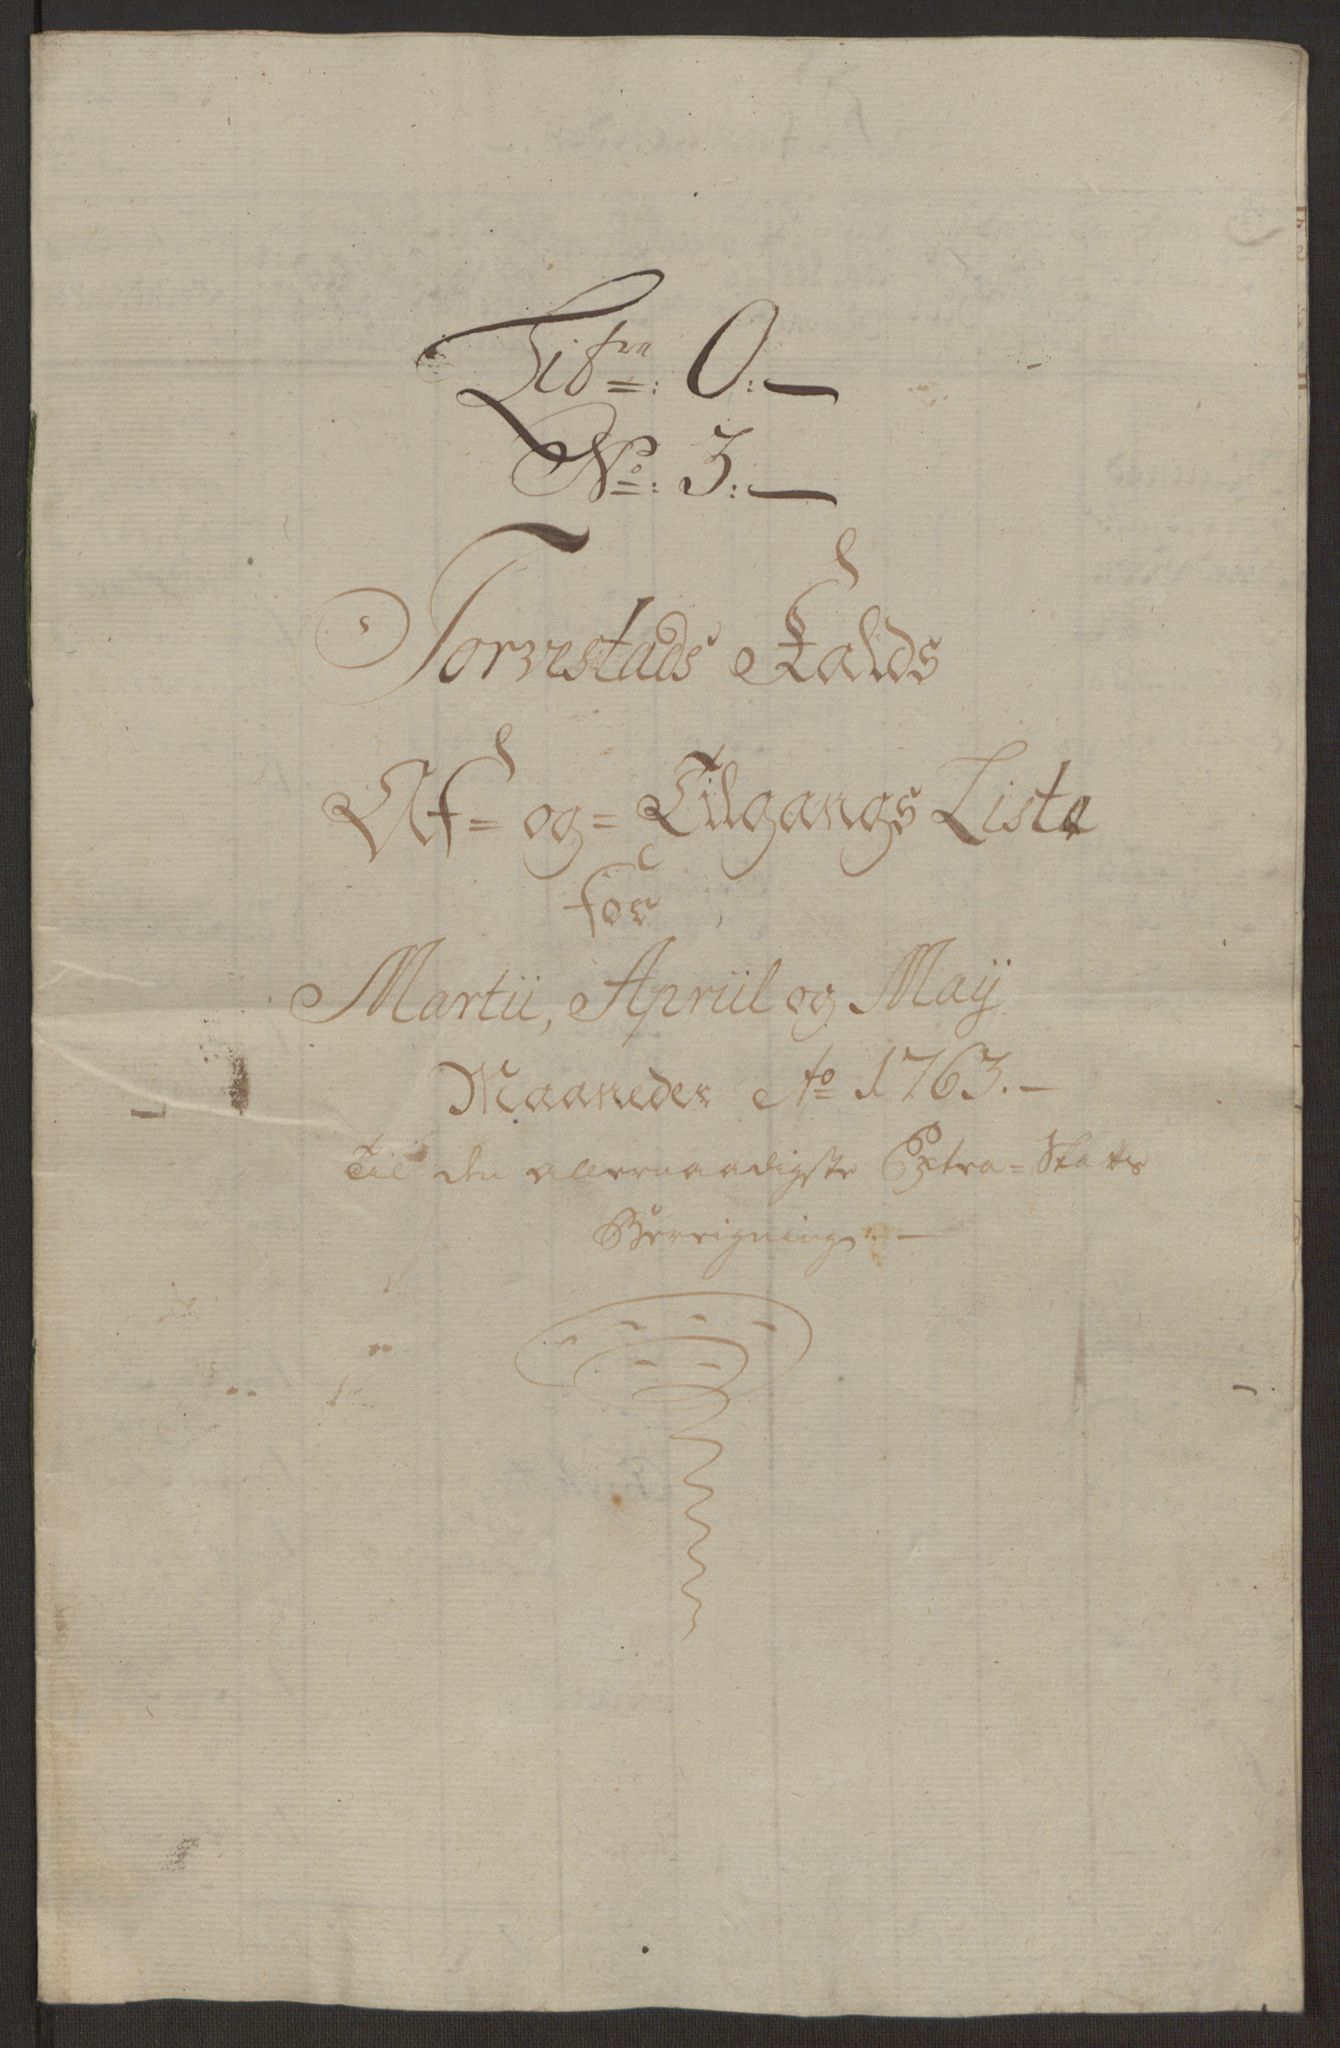 Litra O:
No: 3:
Torvestads Kalds
Af= og= Tilgangs Liste
for
Martii, Apriil og Maij
Maaneder Ao 1763.
Til den allernaadigste Extra=Skatts
Bereigning